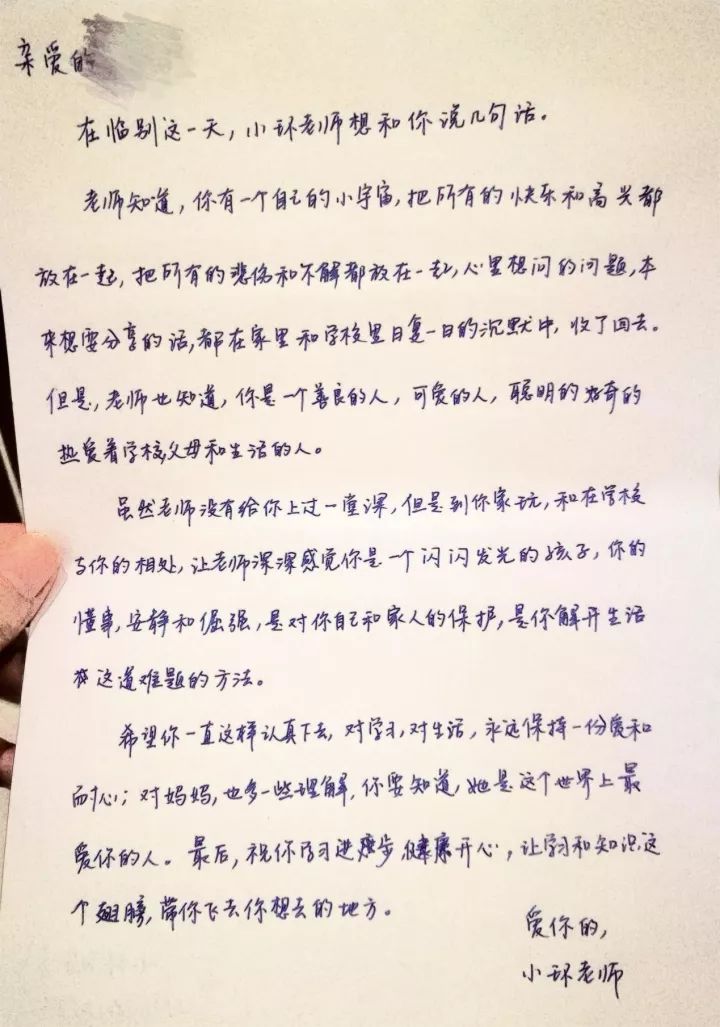 亲爱的
在临别这一天，小环老师想和你说几句话。
老师知道，你有一个自己的小宇宙，把所有的快乐和高兴都
放在一起，把所有的悲伤和不解都放在一起，心里想问的问题，本
来想要分享的话，都在家里和学校里日复一日的沉默中，收了回去。
但是，老师也知道，你是一个善良的人，可爱的人，聪明的好奇的
热爱着学校父母和生活的人。
虽然老师没有给你上过一堂课，但是到你家玩，和在学校
与你的相处，让老师深深感觉你是一个闪闪发光的孩子，你的
懂事，安静和倔强，是对你自己和家人的保护，是你解开生活
这道难题的方法。
希望你一直这样认真下去，对学习，对生活，永远保持一份爱和
耐心；对妈妈，也多一些理解，你要知道，她是这个世界上最
爱你的人。最后，祝你学习进步，健康开心，让学习和知识这
个翅膀，带你飞去你想去的地方。
爱你的，
小环老师